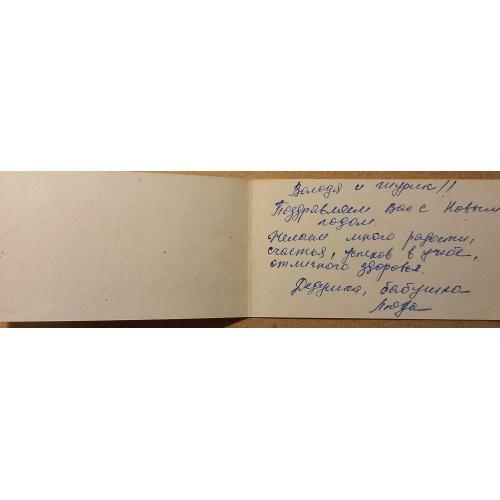 Володя и Шурик!!
Поздравляем Вас с Новым
годом.
Желаем много радости,
счастья, успехов в учебе,
отличного здоровья.
Дедушка, бабушка
Люда